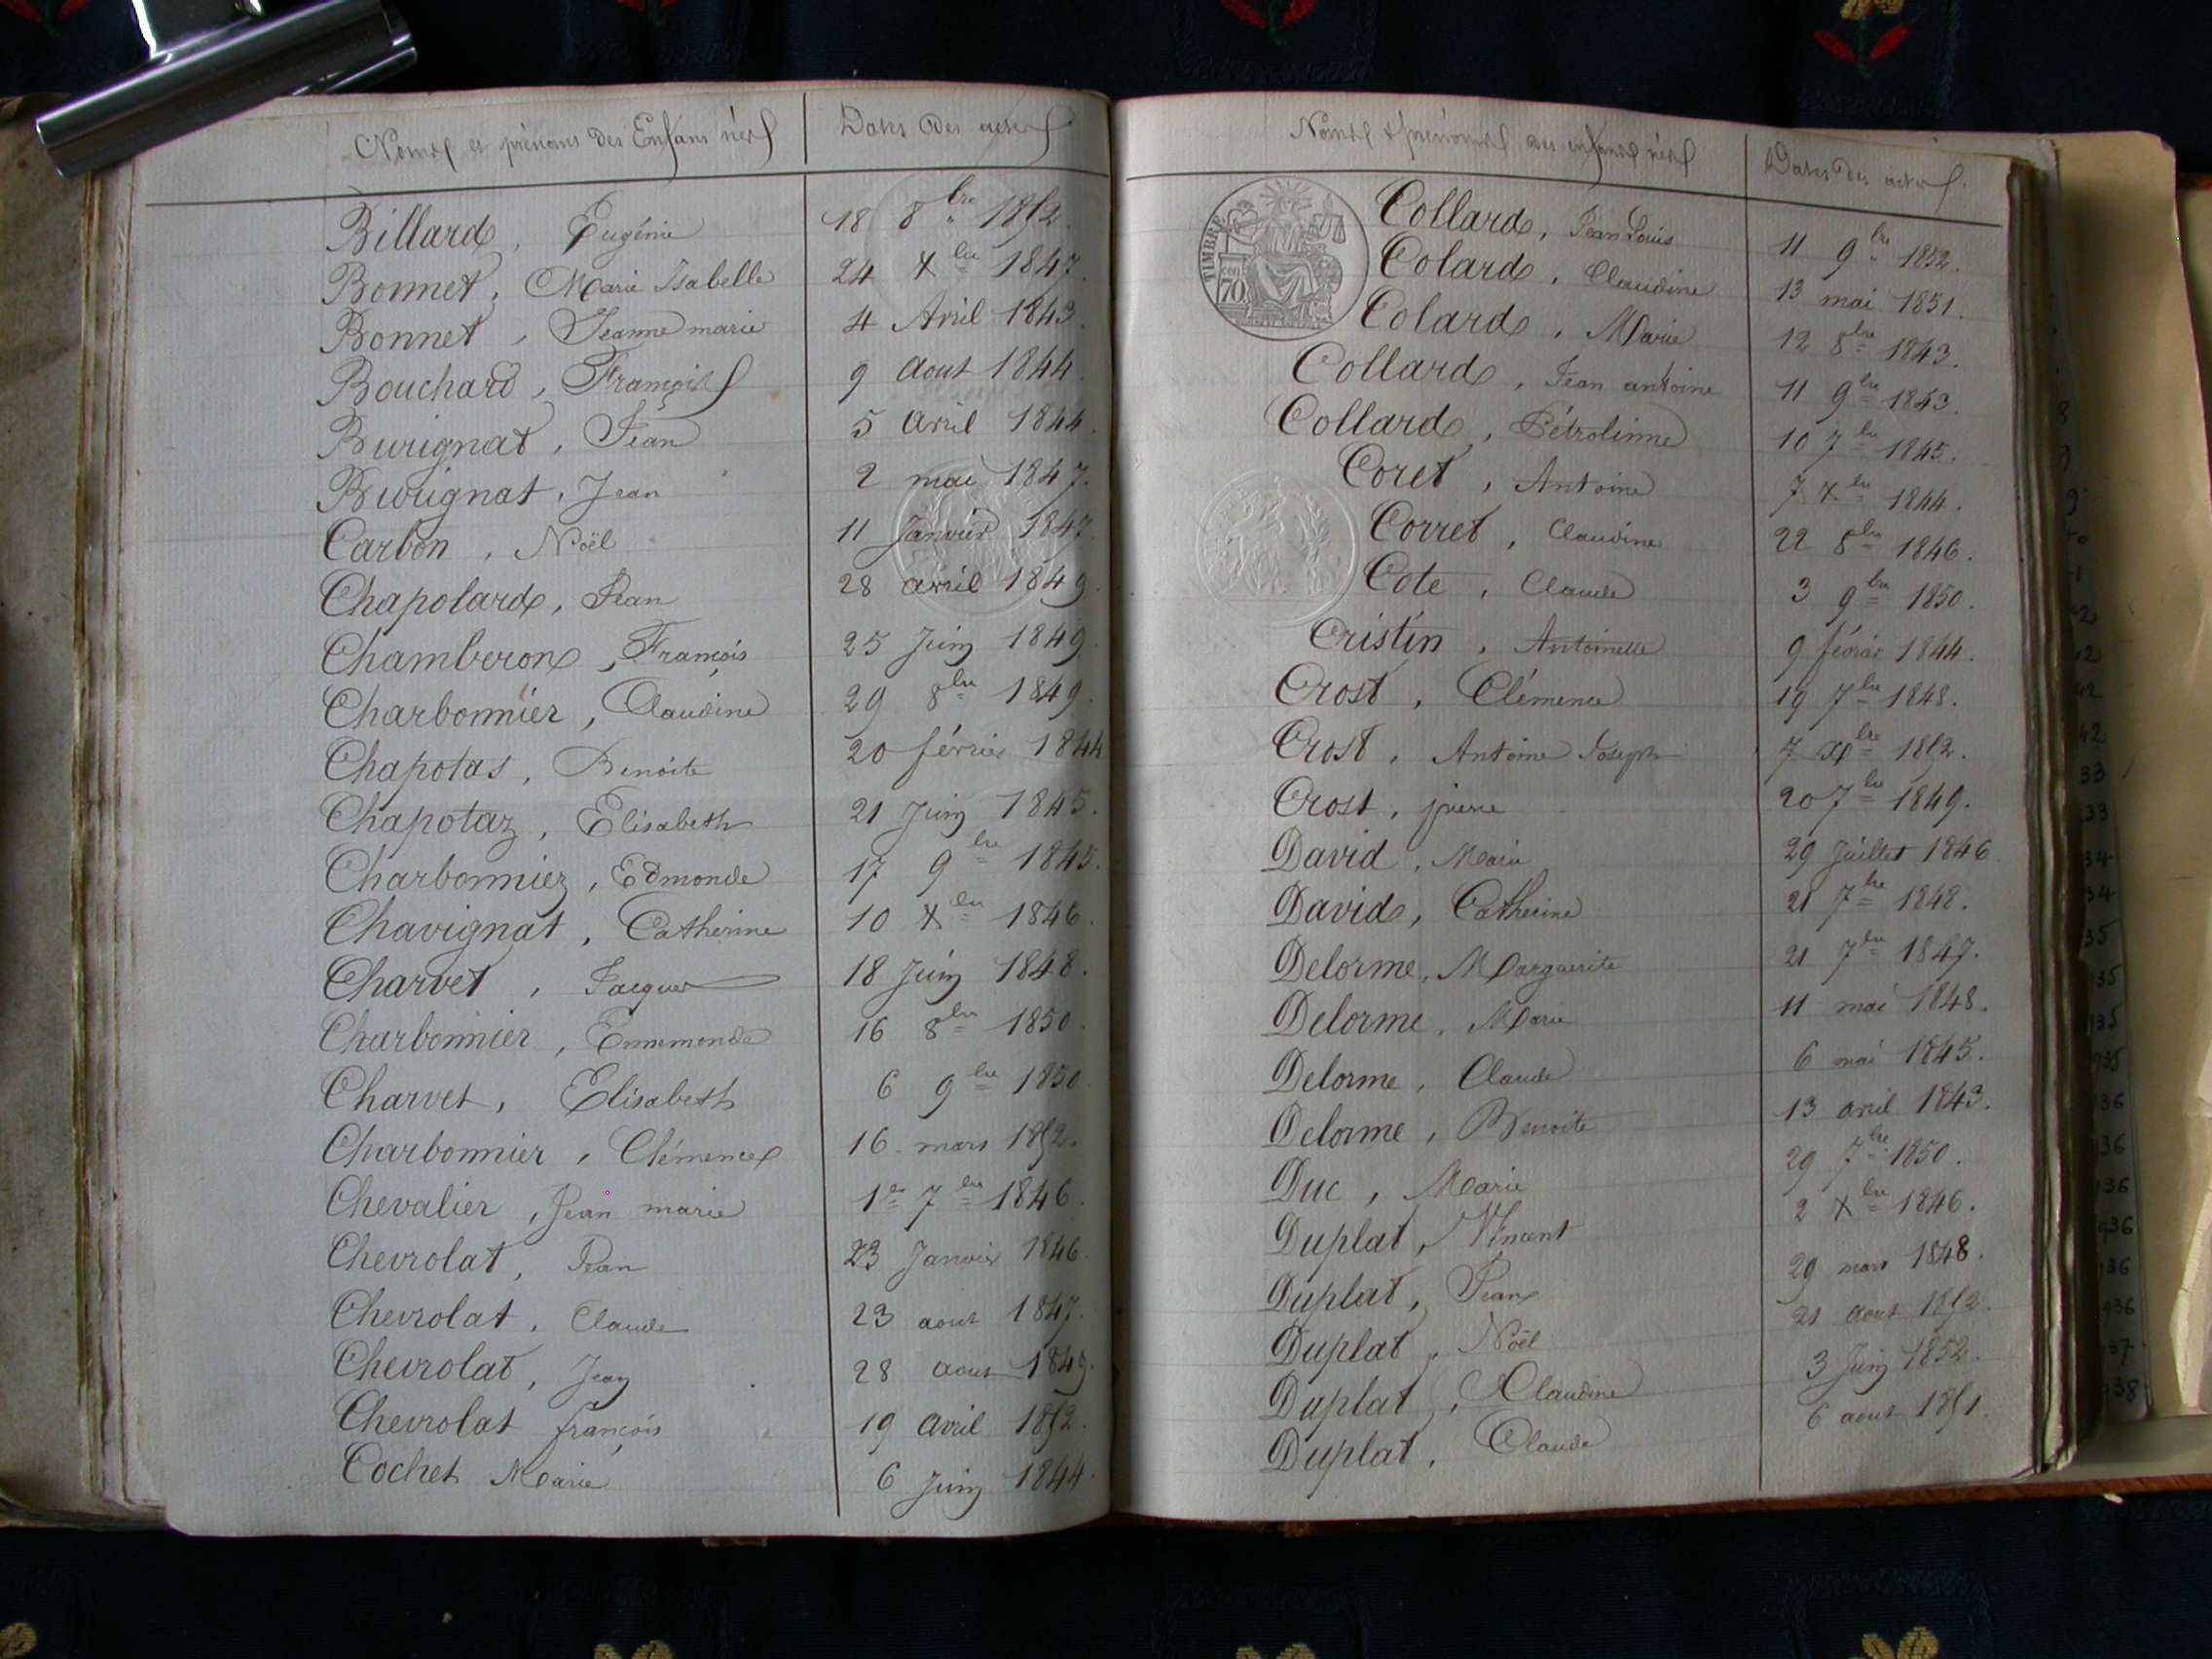 Noms et prénoms des Enfans nés
Dates des actes
Billard, Eugénie 18 8bre 1852.
Bonnet, Marie Isabelle 24 Xbre 1847.
Bonnet, Jeanne marie 4 Avril 1843.
Bouchard, François 9 Aout 1844.
Burignat, Jean 5 avril 1844.
Burignat, Jean 2 mai 1847.
Carbon, Noël 11 Janvier 1847.
Chapolard, Jean 28 avril 1849.
Chamberon, François 25 Juin 1849.
Charbonnier, Claudine 29 8bre 1849.
Chapotas, Benoite 20 février 1844
Chapotaz, Elisabeth 21 Juin 1845.
Charbonnier, Edmonde 17 9bre 1845.
Chavignat, Catherine 10 Xbre 1846.
Charvet, Jacques 18 Juin 1848.
Charbonnier, Ennemonde 16 8bre 1850.
Charvet, Elisabeth 6 9bre 1850.
Charbonnier, Clémence 16 mars 1852.
Chevalier, Jean marie 1er 7bre 1846.
Chevrolat, Jean 23 Janvier 1846.
Chevrolat, Claude 23 aout 1847.
Chevrolat, Jean 28 aout 1849.
Chevrolat françois 19 avril 1852.
Cochet Marie 6 Juin 1844.
Noms & prénoms des enfans nés
Dates des actes.
TIMBRE
70
Collard, Jean Louis 11 9bre 1852.
Colard, Claudine 13 mai 1851.
Colard, Marie 12 8bre 1843.
Collard, Jean antoine 11 9bre 1843.
Collard, Pétrolinne 10 7bre 1845.
Coret, Antoine 7 Xbre 1844.
Corret, Claudine 22 8bre 1846.
Cote, Claude 3 9bre 1850.
Cristin, Antoinette 9 février 1844.
Crost, Clémence 19 7bre 1848.
Crost, Antoine Joseph 7 Xbre 1852.
Crost, pierre 20 7bre 1849.
David, Marie 29 Juillet 1846.
David, Catherine 21 7bre 1848.
Delorme, Marguerite 21 7bre 1847.
Delorme, Marie 11 mai 1848.
Delorme, Claude 6 mai 1845.
Delorme, Benoite 13 avril 1843.
Duc, Marie 29 7bre 1850.
Duplat, Vincent 2 Xbre 1846.
Duplat, Jean 29 mars 1848.
Duplat, Noël 21 aout 1852.
Duplat, Claudine 3 Juin 1852.
Duplat, Claude 6 aout 1851.